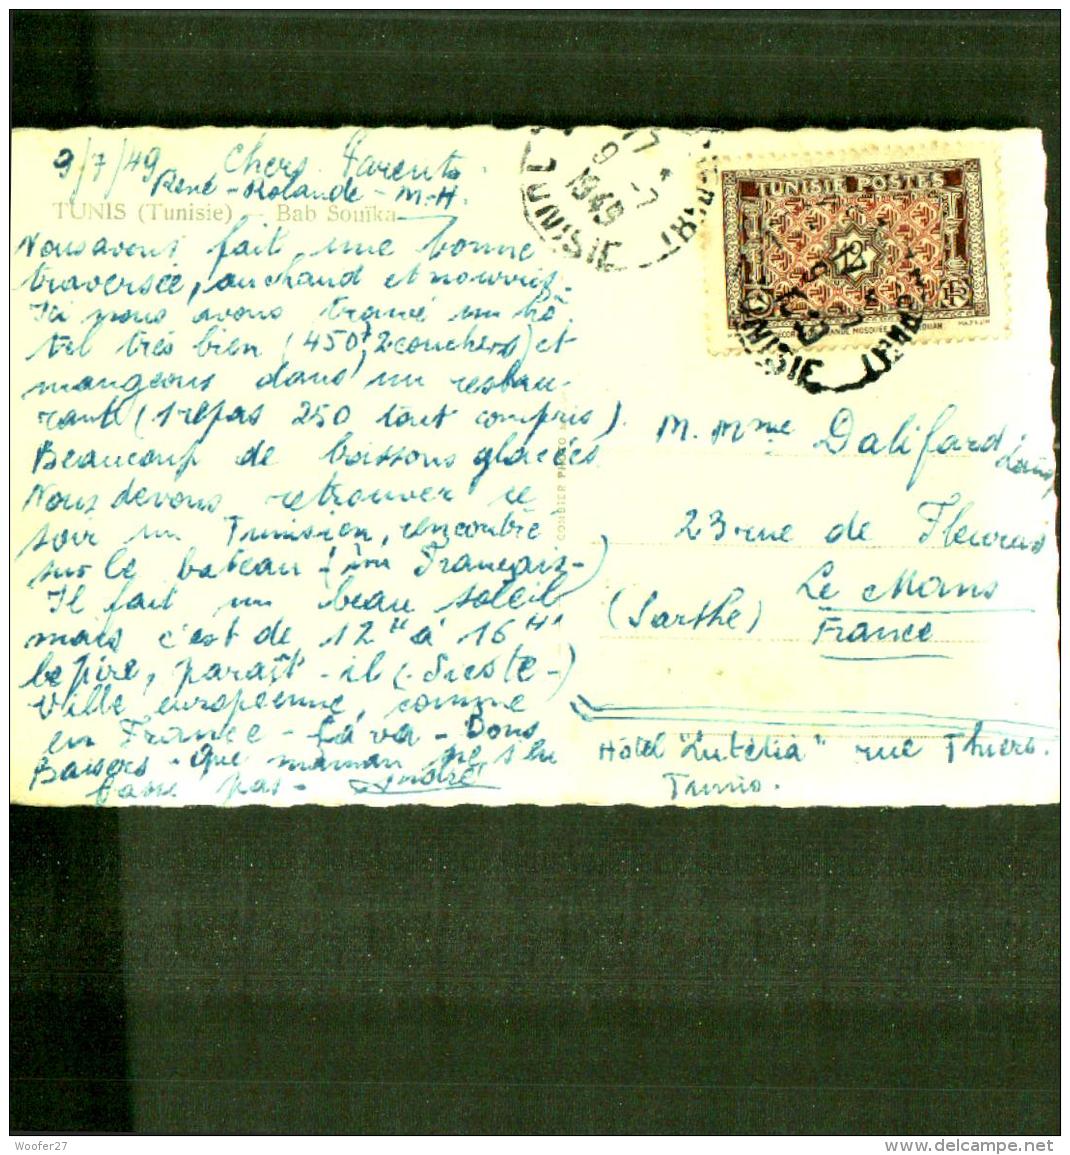 9/7/49 Chers Parents
René - Rolande - M.H.
TUNIS (Tunisie) - Bab Souïka
Nous avons fait une bonne
traversée, au chaud et nourris.
Ici nous avons trouvé un hô-
tel très bien (450F, 2 couchers) et
mangeons dans un restau-
rant (1 repas 250 tout compris).
Beaucoup de boissons glacées
Nous devons retrouver ce
soir un Tunisien, rencontré
sur le bateau Français-)
Il fait un beau soleil
mais c'est de 12H à 16H
le pire, paraît-il (-Sieste-)
Ville européenne, comme
en France - Ça va - Bons
Baisers - Que maman ne s'en
fasse pas - André
COMBIER PHOTO
TUNISIE
9 -7
1949
TUNISIE POSTES
12
F
GRANDE MOSQUÉE
TUNISIE
M. Mme Dalifard
23 rue de Fleurus
Le Mans
(Sarthe)
France
Hôtel "Lutétia" rue Thiers.
Tunis.
Woofer27
delcampe.net